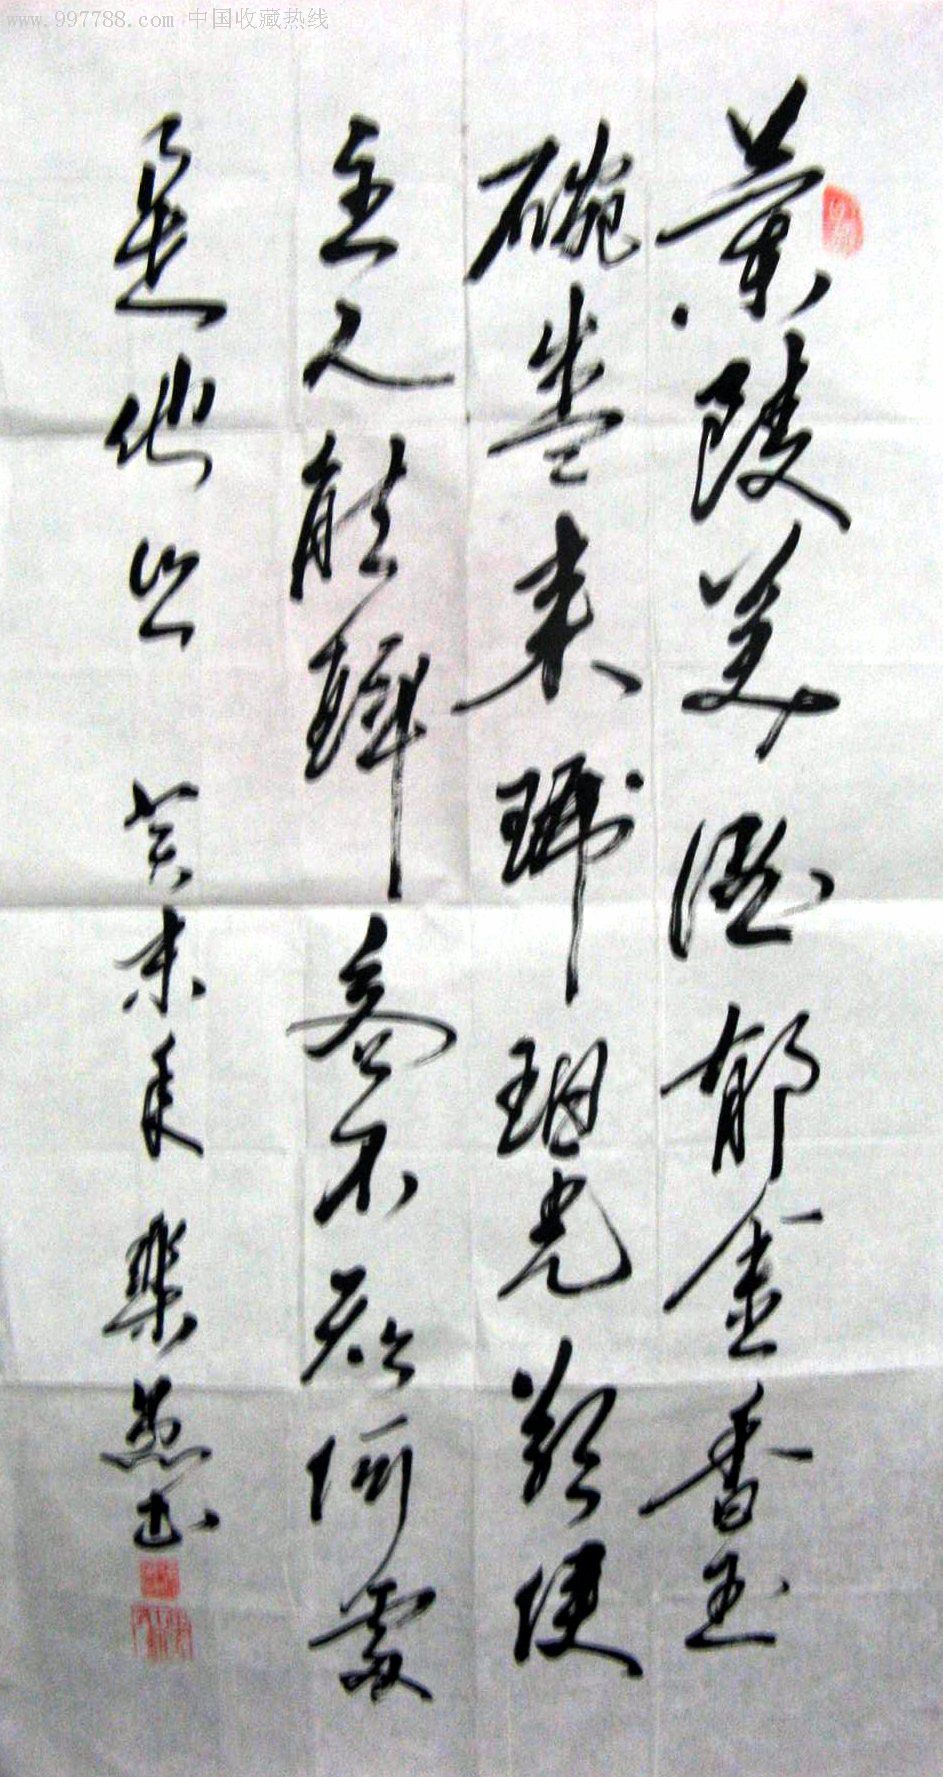 www.997788.com 中国收藏热线
蘭陵美酒郁金香玉
碗盛来琥珀光使
主人能醉客不知何處
是他乡 癸未年 书